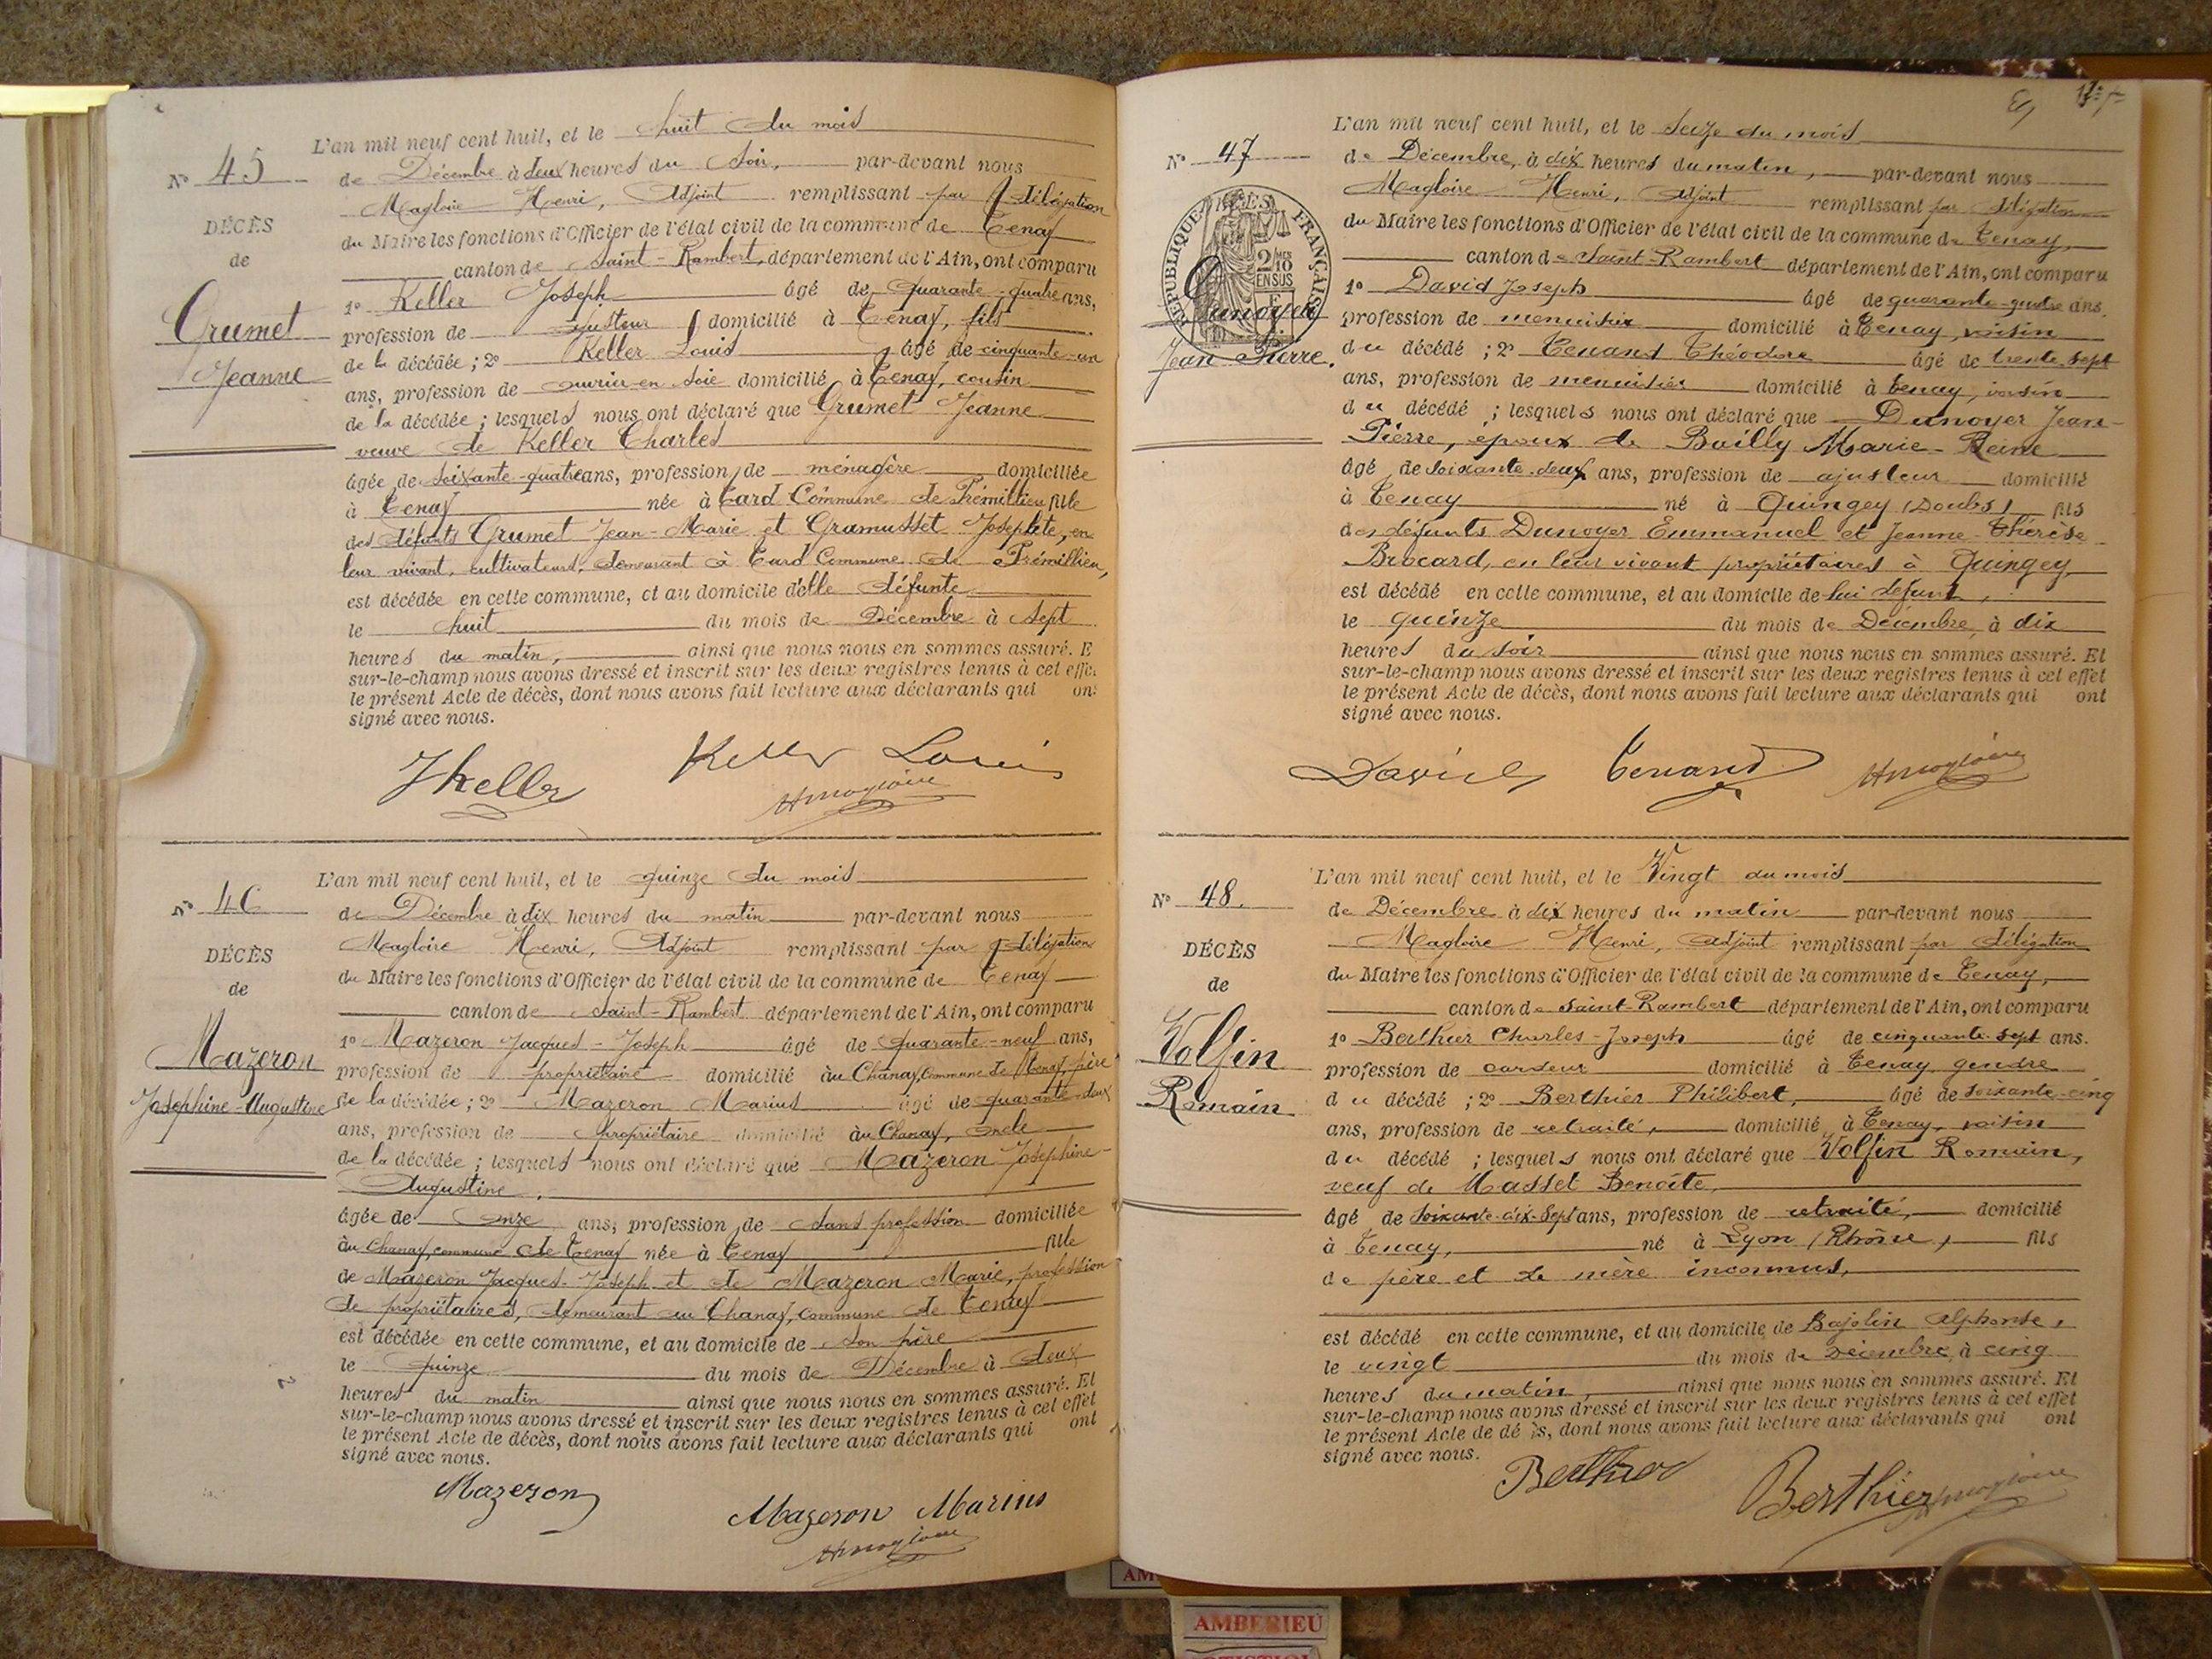 L'an mil neuf cent huit, et le huit du mois
N° 45
de Décembre à deux heures du Soir, par-devant nous
Magloire Henri, Adjoint remplissant par délégation
DÉCÈS
du Maire les fonctions d'Officier de l'état civil de la commune de Tenay
de
canton de Saint-Rambert, département de l'Ain, ont comparu
1° Keller Joseph âgé de Quarante-quatre ans,
Grumet
profession de ajusteur domicilié à Tenay, fils
de la décédée ; 2° Keller Louis âgé de cinquante-un
Jeanne
ans, profession de ouvrier en soie domicilié à Tenay, cousin
de la décédée ; lesquels nous ont déclaré que Grumet Jeanne
veuve de Keller Charles
âgée de soixante-quatre ans, profession de ménagère domiciliée
à Tenay née à Tard Commune de Prémillieu fille
des défunts Grumet Jean-Marie et Gramusset Josephte, en
leur vivant, cultivateurs, demeurant à Tard Commune de Prémillieu,
est décédée en cette commune, et au domicile d'elle défunte
le huit du mois de Décembre à sept
heures du matin, ainsi que nous nous en sommes assuré. E
sur-le-champ nous avons dressé et inscrit sur les deux registres tenus à cet effe
le présent Acte de décès, dont nous avons fait lecture aux déclarants qui on
signé avec nous.
J Keller Keller Louis
HMagloire
L'an mil neuf cent huit, et le quinze du mois
N° 46
de Décembre à dix heures du matin par-devant nous
Magloire Henri, Adjoint remplissant par délégation
DÉCÈS
du Maire les fonctions d'Officier de l'état civil de la commune de Tenay
de
canton de Saint-Rambert département de l'Ain, ont comparu
1° Mazeron Jacques-Joseph âgé de Quarante-neuf ans,
Mazeron
profession de propriétaire domicilié au Chanay, Commune de Tenay, père
Joséphine-Augustine
de la décédée ; 2° Mazeron Marius âgé de quarante-deux
ans, profession de propriétaire domicilié au Chanay, oncle
de la décédée ; lesquels nous ont déclaré que Mazeron Joséphine-
Augustine,
âgée de Onze ans, profession de sans profession domiciliée
au Chanay, commune de Tenay née à Tenay fille
de Mazeron Jacques-Joseph et de Mazeron Marie, profession
de propriétaires, demeurant au Chanay, commune de Tenay
est décédée en cette commune, et au domicile de son père
le quinze du mois de Décembre à deux
heures du matin ainsi que nous nous en sommes assuré. Et
sur-le-champ nous avons dressé et inscrit sur les deux registres tenus à cet effet
le présent Acte de décès, dont nous avons fait lecture aux déclarants qui ont
signé avec nous.
Mazeron
Mazeron Marius
HMagloire
L'an mil neuf cent huit, et le Seize du mois
N° 47
de Décembre, à dix heures du matin, par-devant nous
Magloire Henri, adjoint remplissant par délégation
du Maire les fonctions d'Officier de l'état civil de la commune de Tenay,
RÉPUBLIQUE FRANÇAISE
2/10 EN SUS
canton de Saint-Rambert département de l'Ain, ont comparu
1° David Joseph âgé de quarante-quatre ans.
Dunoyer
profession de menuisier domicilié à Tenay, voisin
Jean Pierre.
du décédé ; 2° Tenand Théodore âgé de trente-sept
ans, profession de menuisier domicilié à Tenay, voisin
du décédé ; lesquels nous ont déclaré que Dunoyer Jean-
Pierre, époux de Bailly Marie-Reine
âgé de soixante-deux ans, profession de ajusteur domicilié
à Tenay né à Quingey (Doubs) fils
des défunts Dunoyer Emmanuel et Jeanne-Thérèse
Brocard, en leur vivant propriétaires à Quingey
est décédé en cette commune, et au domicile de lui défunt,
le quinze du mois de Décembre, à dix
heures du soir ainsi que nous nous en sommes assuré. Et
sur-le-champ nous avons dressé et inscrit sur les deux registres tenus à cet effet
le présent Acte de décès, dont nous avons fait lecture aux déclarants qui ont
signé avec nous.
David Tenand HMagloire
L'an mil neuf cent huit, et le Vingt du mois
N° 48.
de Décembre à dix heures du matin par-devant nous
Magloire Henri, adjoint remplissant par délégation
DÉCÈS
du Maire les fonctions d'Officier de l'état civil de la commune de Tenay,
de
canton de Saint-Rambert département de l'Ain, ont comparu
1° Berthier Charles-Joseph âgé de cinquante-sept ans.
Volfin
profession de cardeur domicilié à Tenay gendre
Romain
du décédé ; 2° Berthier Philibert, âgé de soixante-cinq
ans, profession de retraité, domicilié à Tenay, voisin
du décédé ; lesquels nous ont déclaré que Volfin Romain,
veuf de Masset Benoîte,
âgé de soixante-dix-sept ans, profession de retraité, domicilié
à Tenay, né à Lyon (Rhône, fils
de père et de mère inconnus,
est décédé en cette commune, et au domicile de Bajolin Alphonse,
le vingt du mois de Décembre, à cinq
heures du matin, ainsi que nous nous en sommes assuré. Et
sur-le-champ nous avons dressé et inscrit sur les deux registres tenus à cet effet
le présent Acte de dé ès, dont nous avons fait lecture aux déclarants qui ont
signé avec nous.
Berthier
Berthier HMagloire
AM
AMBERIEU